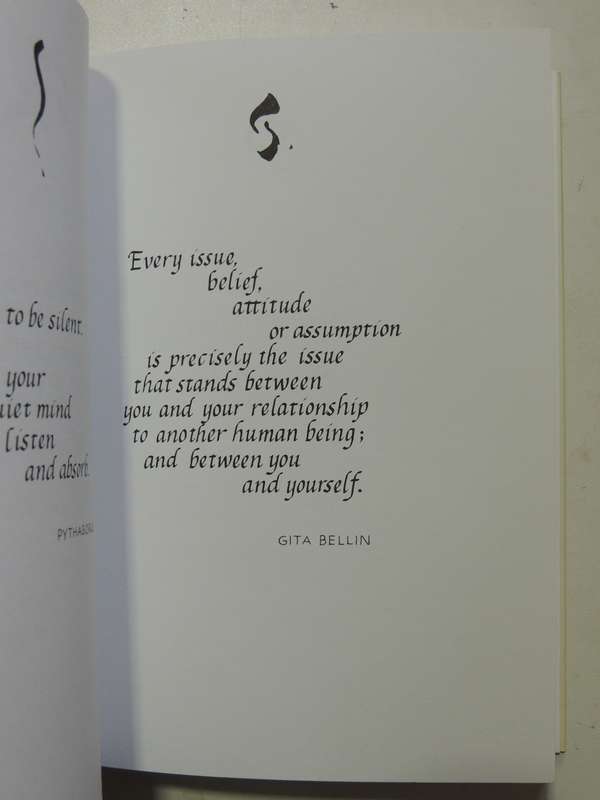 to be silent.
your
mind
listen
and absorb.
Every issue,
belief,
attitude
or assumption
is precisely the issue
that stands between
you and your relationship
to another human being;
and between you
and yourself.
GITA BELLIN